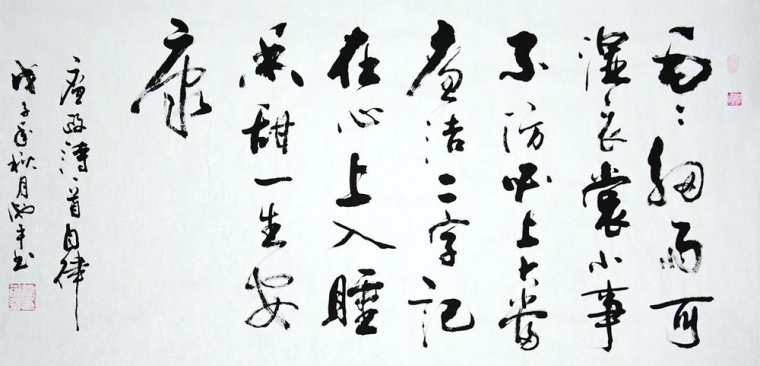 毛々細雨可
湿衣裳小事
不防吃上大當
廉洁二字記
在心上入睡
香甜一生安
康
廉政诗一首自律
戊子年秋月平书